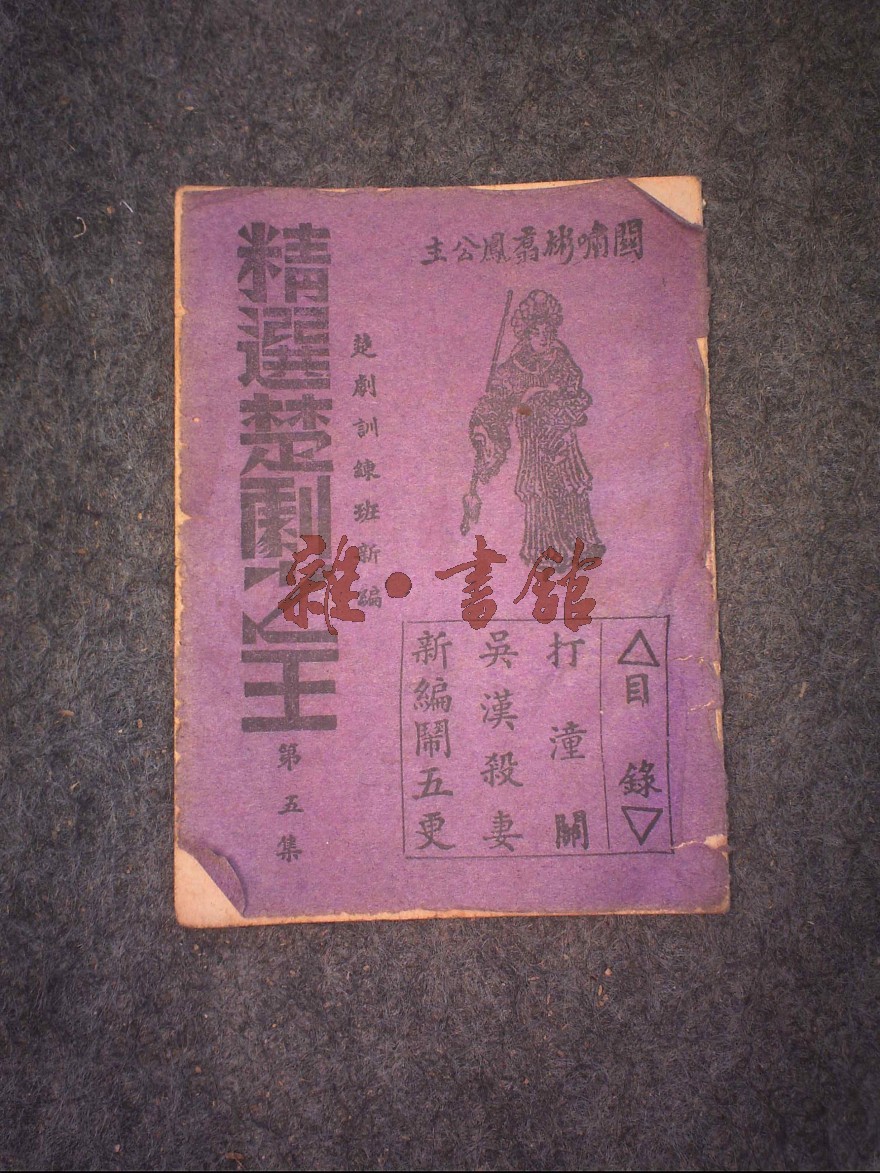 關嘯彬鳳公主
精選楚劇之王
楚劇訓練班新編
第五集
△目錄▽
打潼關
吳漢殺妻
新編鬧五更
雜·書館